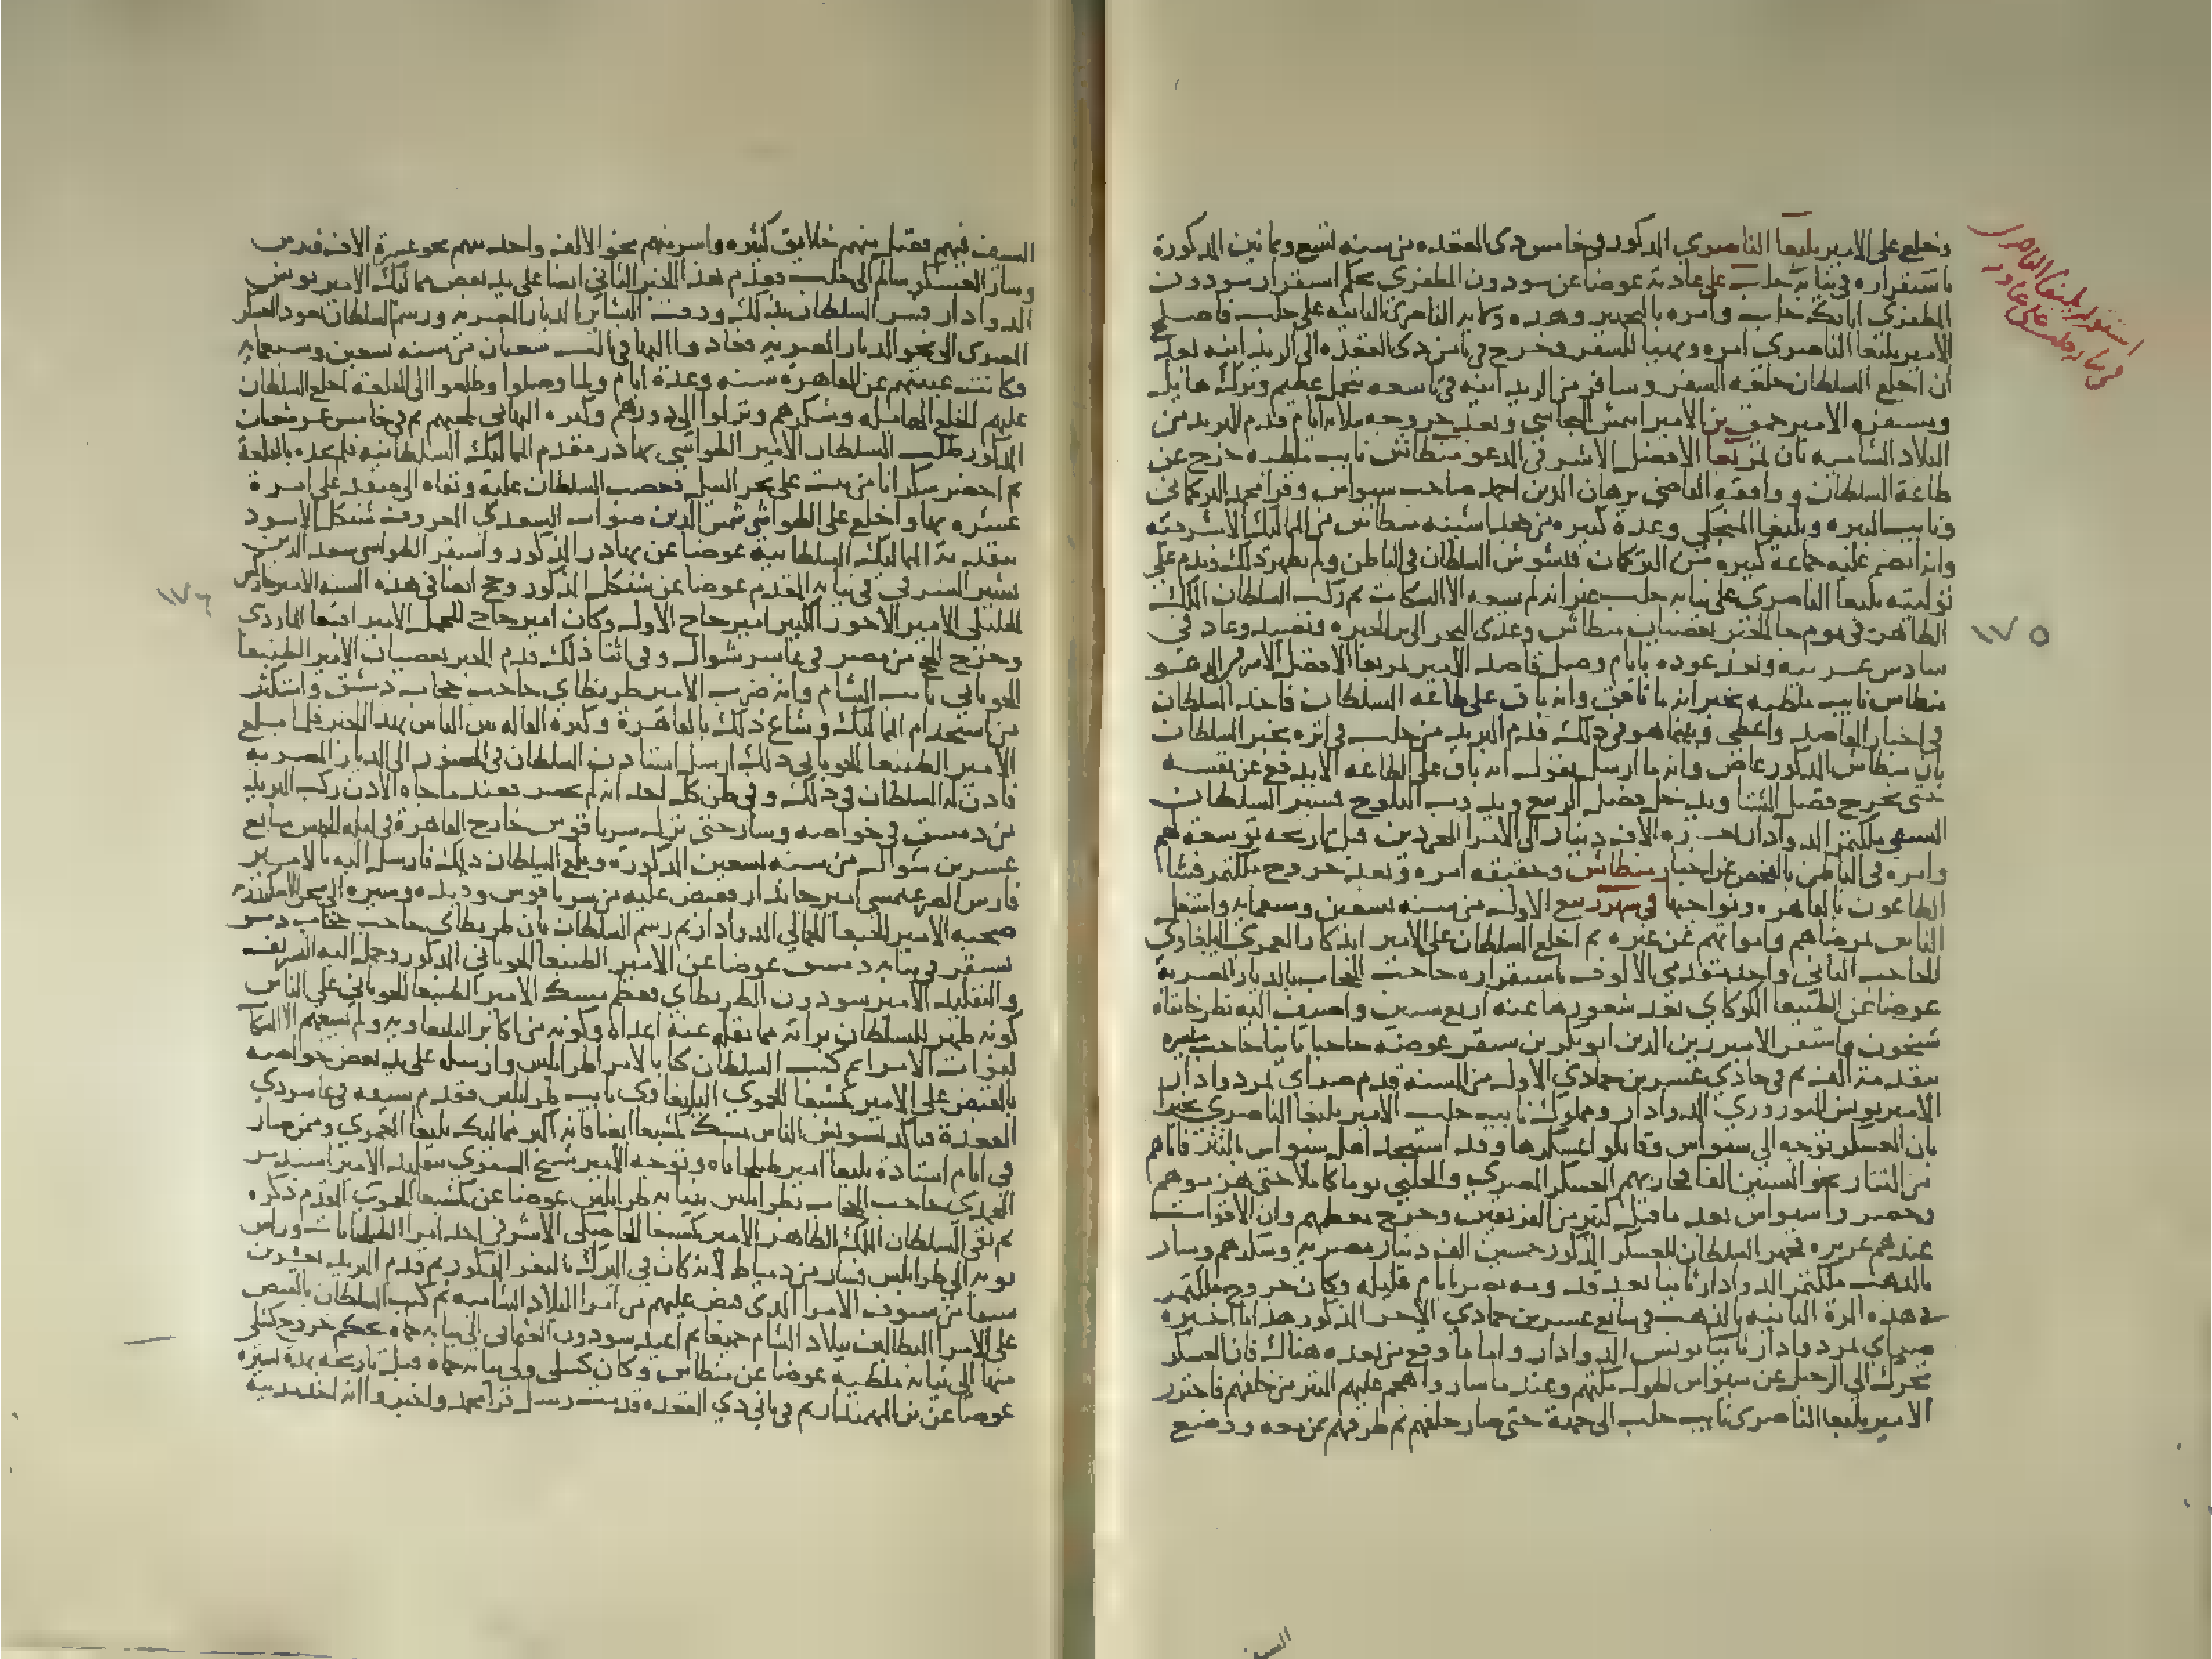 وخلع على الامير يلبغا الناصري المذكور في خامس ذي القعده من سنه تسع وثمانين المذكورة
باستقراره في نيابة حلب على عادته عوضا عن سودون المظفري بحكم استقرار سودون
المظفري اتابك حلب وامره بالتجهيز وهذه ولايه الناصري الثانيه على حلب فاصلح
الامير يلبغا الناصري امره وتهيا للسفر وخرج في ثامن ذي القعده الى الريدانيه بعد
ان اخلع السلطان خلعه السفر وسافر من الريدانيه في تاسعه بتجمل عظيم وبرك هايل
ومسفره الامير جمق بن الامير ايتمش البجاسي وبعد خروجه بثلاثه ايام قدم البريد من
البلاد الشاميه بان تمربغا الافضلي الاشرفي المدعو منطاش نايب ملطيه خرج عن
طاعة السلطان ووافقه القاضي برهان الدين احمد صاحب سيواس وقرا محمد التركماني
ونايب البيره ويلبغا المنجكي وعدة كبيره من خشداشينه منطاش من المماليك الاشرفيه
وانه انضم عليه جماعة كبيره من التركمان فتشوش السلطان في الباطن ولم يظهر ذلك وندم على
توليته يلبغا الناصري على نيابه حلب غير انه لم يسعه الا السكات ثم ركب السلطان الملك
الظاهر في يوم جا الخبر بعصيان منطاش وعدى البحر الى بر الجيزه وتصيد وعاد في
سادس عشرينه وبعد عوده بايام وصل قاصد الامير تمربغا الافضلي الاشرفي المدعو
منطاس نايب ملطيه يخبر انه ما نافق وانه باق على طاعه السلطان فاخذ السلطان
في اخبار القاصد واعطي وبينما هو في ذلك قدم البريد من حلب في اثره يخبر السلطان
بان منطاس المذكور عاص وانه ما ارسل يقول انه باق على الطاعه الا يدفع عن نفسه
حتى يخرج فصل الشتا ويدخل فصل الربيع ويذوب الثلوج فسير السلطان
السيفي ملكتمر الدوادار بعشره الاف دينار الى الامرا المجردين قبل تاريخه توسعة لهم
وامره في الباطن بالفحص عن اخبار منطاش وحقيقه امره وبعد خروج ملكتمر فشا
الطاعون بالقاهره ونواحيها في شهر ربيع الاول من سنه تسعين وسبعمايه واشتغل
الناس بمرضاهم وامواتهم عن غيره ثم اخلع السلطان على الامير ايدكار العمري اليلبغاوي
الحاجب الثاني واحد مقدمي الالوف باستقراره حاجب الحجاب بالديار المصرية
عوضا عن قطلبغا الكوكاي بعد شغورها عنه اربع سنين واضيف اليه نظر خانقاه
شيخون واستقر الامير زين الدين ابو بكر بن سنقر عوضه حاجبا ثانيا حاجب ميسره
بتقدمة الف ثم في حادي عشرين جمادي الاول من السنه قدم صراي تمر دوادار
الامير يونس النوروزي الدوادار ومملوك نايب حلب الامير يلبغا الناصري يخبر
بان العسكر توجه الى سيواس وقاتلوا عسكرها وقد استنجد اهل سيواس بالتتر فاتاهم
من التتار نحو الستين الفا فحاربهم العسكر المصري والحلبي يوما كاملا حتى هزموهم
وحصروا سيواس بعد ما قتل كثير من الفريقين وجرح معظمهم وان الاقوات
عندهم عزيزه فجهز السلطان للعسكر المذكور خمسين الف دينار مصريه وشكرهم وسار
بالذهب ملكتمر الدوادار ثانيا بعد قدومه بمصر بايام قليله وكان خروج ملكتمر
في هذه المرة الثانيه بالذهب في سابع عشرين جمادي الاخر المذكور هذا ما اخبره
صراي تمر دوادار ثانيا يونس الدوادار واما ما وقع من بعده هناك فان العسكر
تحرك الى الرحيل عن سيواس لطول مكثهم وعند ما ساروا هجم عليهم التتر من خلفهم فاحترز
الامير يلبغا الناصري نايب حلب الى جهة حتى صار خلفهم ثم طرقهم بمن معه ووضع
السيف
استقرار يلبغا الناصري
في نيابة حلب على عادته
١٧٥
السيف فيهم فقتل منهم خلايق كثيره واسر منهم نحو الالف واخذ منهم نحو عشرة الاف فرس
وسار العسكر سالم الى حلب فقدم هذا الخبر الثاني ايضا على يد بعض مماليك الامير يونس
الدوادار فسر السلطان بذلك ودقت البشاير بالديار المصريه ورسم السلطان بعود العسكر
المصري الى نحو الديار المصريه فعادوا اليها في شعبان من سنه تسعين وسبعمايه
وكانت غيبتهم عن القاهرة سنه وعدة ايام ولما وصلوا وطلعوا الى القلعة اخلع السلطان
عليهم الخلع الهايله وشكرهم ونزلوا الى دورهم وكثره التهاني لمجيهم ثم في خامس عشر شعبان
المذكور طلب السلطان الامير الطواشي بهادر مقدم المماليك السلطانيه فلم يجده بالقلعة
ثم احضر سكرانا من بيت على بحر النيل فغضب السلطان عليه ونفاه الى صفد على امرة
عشره بها واخلع على الطواشي شمس الدين صواب السعدي المعروف شنكل الاسود
بتقدمة المماليك السلطانيه عوضا عن بهادر المذكور واستقر الطواشي سعد الدين
بشير الشرفي في نيابه المقدم عوضا عن شنكل المذكور وحج ايضا في هذه السنه الامير جاركس
الخليلي الامير الاخور الكبير امير حاج الاول وكان امير حاج المحمل الامير اقبغا المارداني
وخرج الحج من مصر في عاشر شوال وفي اثنا ذلك قدم الخبر بعصيان الامير الطنبغا
الجوباني نايب الشام وانه ضرب الامير طرنطاي حاجب حجاب دمشق واستكثر
من استخدام المماليك وشاع ذلك بالقاهرة وكثره القاله بين الناس بهذا الخبر فلما بلغ
الامير الطنبغا الجوباني ذلك ارسل استاذن السلطان في الحضور الى الديار المصريه
فاذن له السلطان في ذلك وفي ظن كل احد انه لم يحضر فعند ما جاه الاذن ركب البريد
من دمشق في خواصه وسار حتى نزل سرياقوس خارج القاهرة في ليله الخميس سابع
عشرين شوال من سنه تسعين المذكوره وبلغ السلطان ذلك فارسل اليه بالامير
فارس الصرغتمشي امير جاندار فقبض عليه من سرياقوس وقيده وسيره الى سجن الاسكندريه
صحبه الامير الطنبغا الجمالي الدوادار ثم رسم السلطان بان طرنطاي حاجب حجاب دمشق
يستقر في نيابه دمشق عوضا عن الامير الطنبغا الجوباني المذكور وحمل اليه التشريف
والتقليد الامير سودون الطرنطاي فعظم مسك الامير الطنبغا الجوباني على الناس
كونه ظهر للسلطان براته مما نقله عنه اعداه وكونه من اكابر اليلبغاويه ولم يسعهم الا السكات
لفوات الامر ثم كتب السلطان كتابا لامرا طرابلس وارسله على يد بعض خواصه
بالقبض على الامير كمشبغا الحموي اليلبغاوي نايب طرابلس فقدم سيفه في عاشر ذي
القعدة فتاكد تشويش الناس بمسك كمشبغا ايضا فانه اكبر مماليك يلبغا العمري وممن صار
في ايام استاذه يلبغا امير طبلخاناه وتوجه الامير شيخ الصفوي بتقليد الامير اسندمر
المحمدي حاجب الحجاب بطرابلس بنيابه طرابلس عوضا عن كمشبغا الحموي المقدم ذكره
ثم نفى السلطان الملك الظاهر الامير كمشبغا الخاصكي الاشرفي احد امرا الطبلخانات وراس
نوبه الى طرابلس فسار من دمياط لانه كان في اليزك بالثغر المذكور ثم قدم البريد بعشرين
سيفا من سيوف الامرا الذي قبض عليهم من امرا البلاد الشاميه ثم كتب السلطان بالقبض
على الامرا البطالين ببلاد الشام جميعا ثم اعيد سودون العثماني الى نيابه حماه بحكم خروج كشلي
منها الى نيابه ملطيه عوضا عن منطاش وكان كشلي ولي نيابه حماه قبل تاريخه بمدة يسيره
عوضا عن بن المهمندار ثم في ثاني ذي القعده قدمت رسل قرا محمد واخبروا انه اخذ مدينه
١٧٦